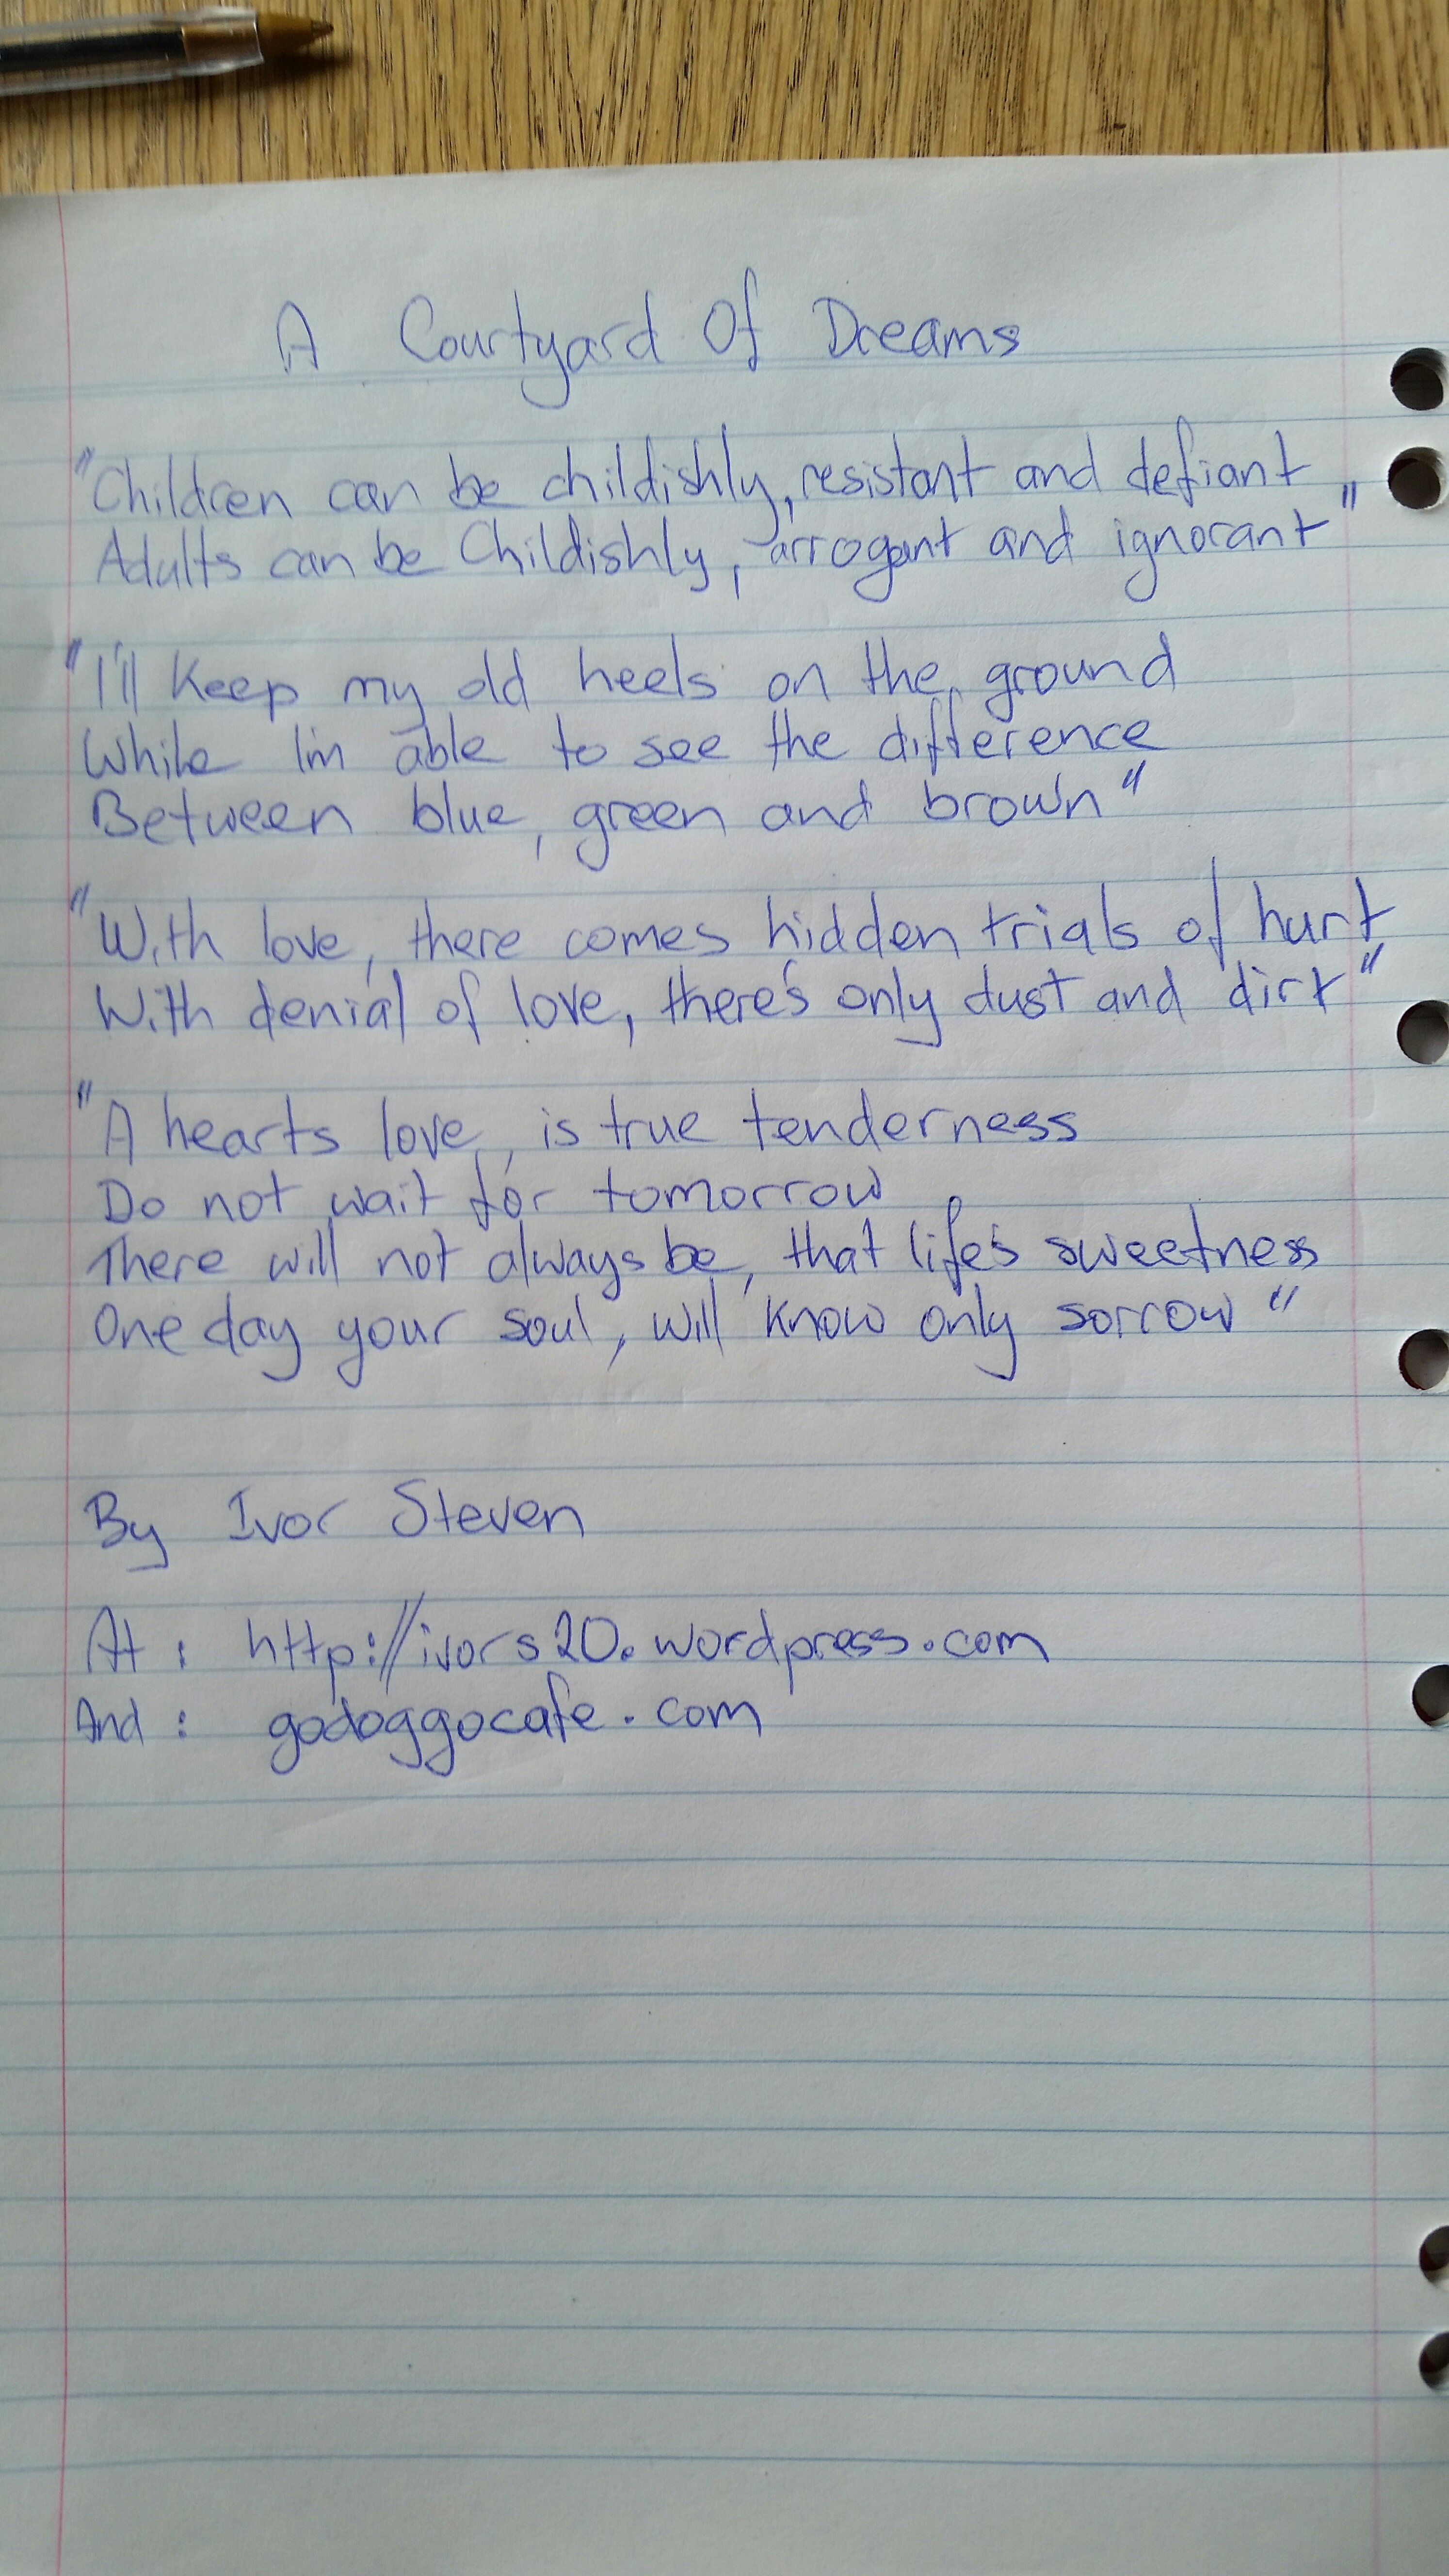 A Courtyard Of Dreams
"Children can be childishly, resistant and defiant
Adults can be Childishly, arrogant and ignorant"
"I'll Keep my old heels on the ground
While I'm able to see the difference
Between blue, green and brown"
"With love, there comes hidden trials of hurt
With denial of love, there's only dust and dirt"
"A hearts love, is true tenderness
Do not wait for tomorrow
There will not always be, that life's sweetness
One day your soul, will know only sorrow"
By Ivor Steven
At : http://ivors20.wordpress.com
And : godoggocafe.com